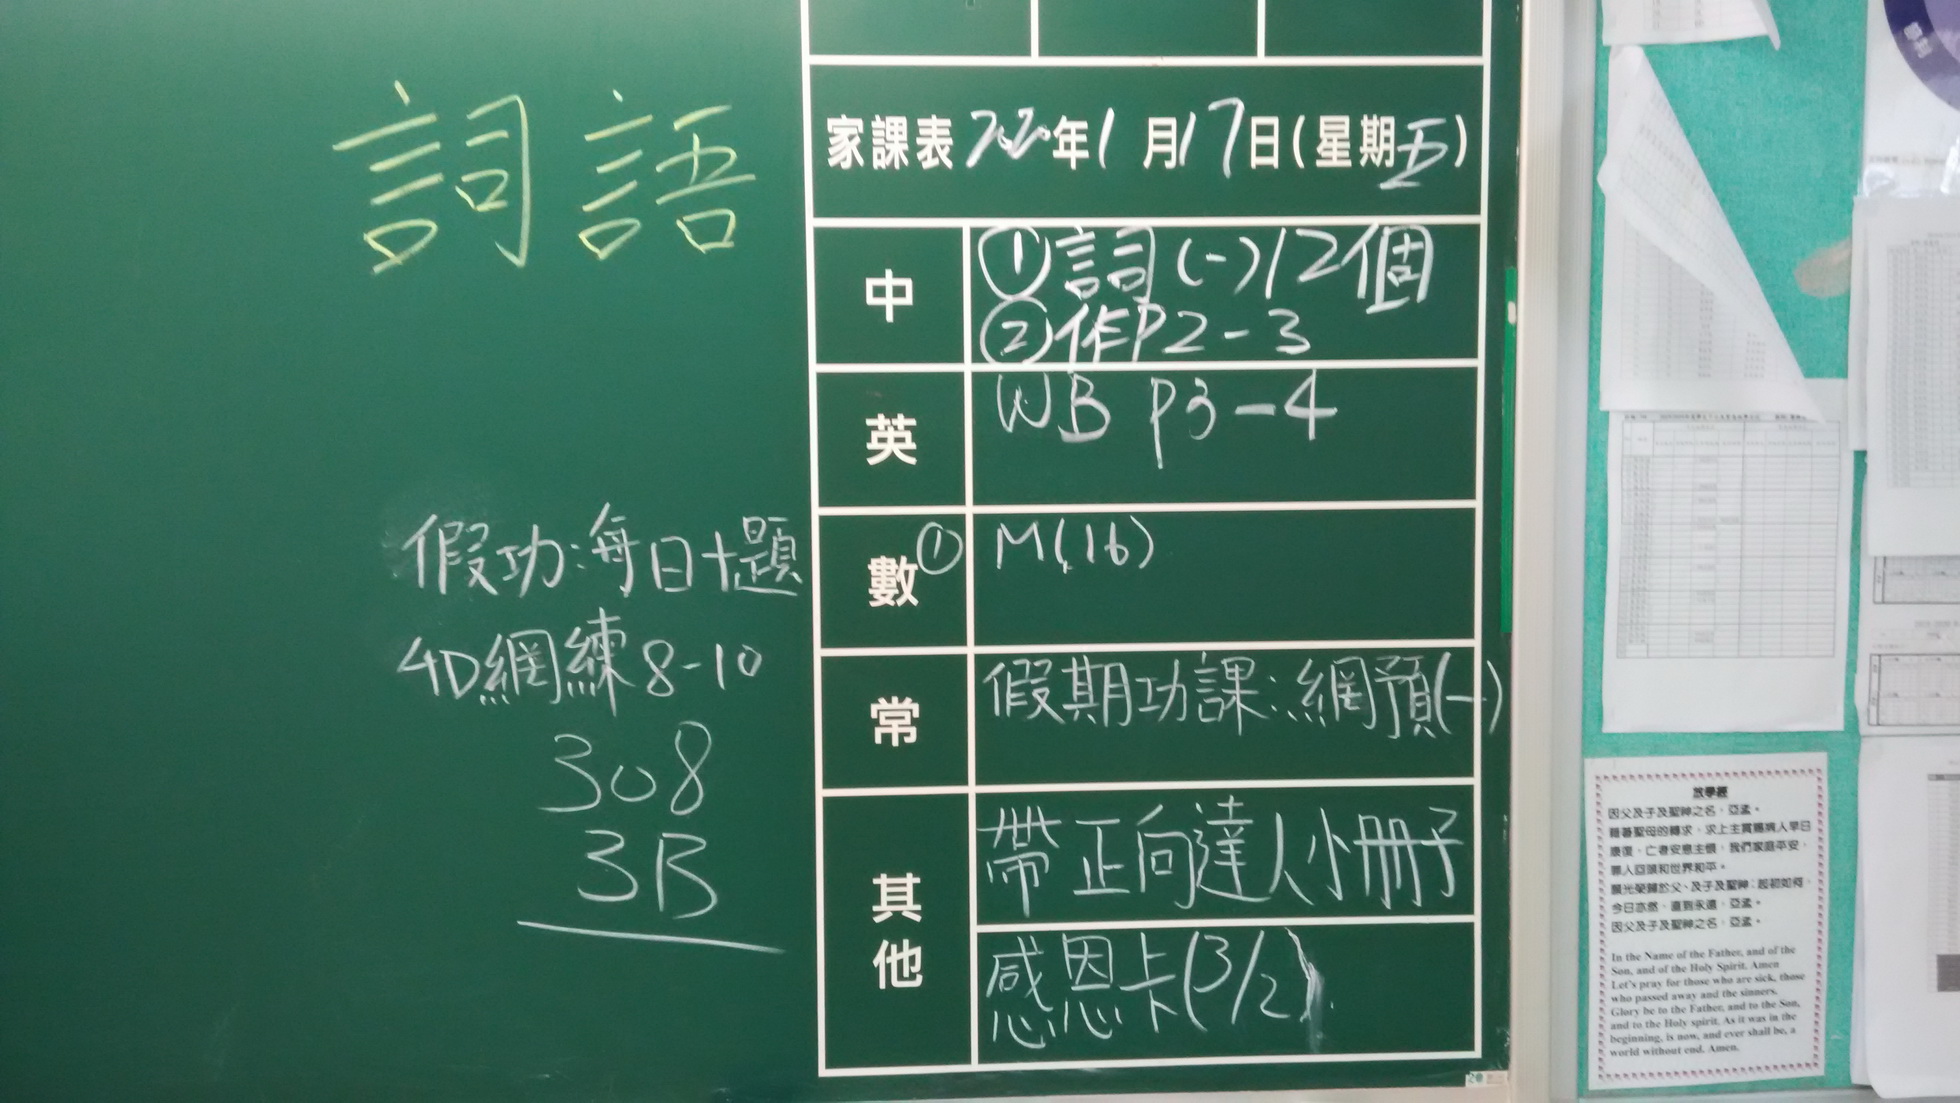 詞語
假功:每日十題
4D網練8-10
308
3B
家課表2020年1月17日(星期五)
中
①詞(一)12個
②作P2-3
英
WB P3-4
數
① M(16)
常
假期功課:網預(一)
其他
帶正向達人小冊子
感恩卡(3/2)
放學經
因父及子及聖神之名,亞孟。
藉著聖母的轉求,求上主賞賜病人早日
康復,亡者安息主懷,我們家庭平安,
罪人回頭和世界和平。
願光榮歸於父、及子及聖神;起初如何,
今日亦然,直到永遠,亞孟。
因父及子及聖神之名,亞孟。
In the Name of the Father, and of the
Son, and of the Holy Spirit. Amen
Let's pray for those who are sick, those
who passed away and the sinners.
Glory be to the Father, and to the Son,
and to the Holy spirit. As it was in the
beginning, is now, and ever shall be, a
world without end. Amen.